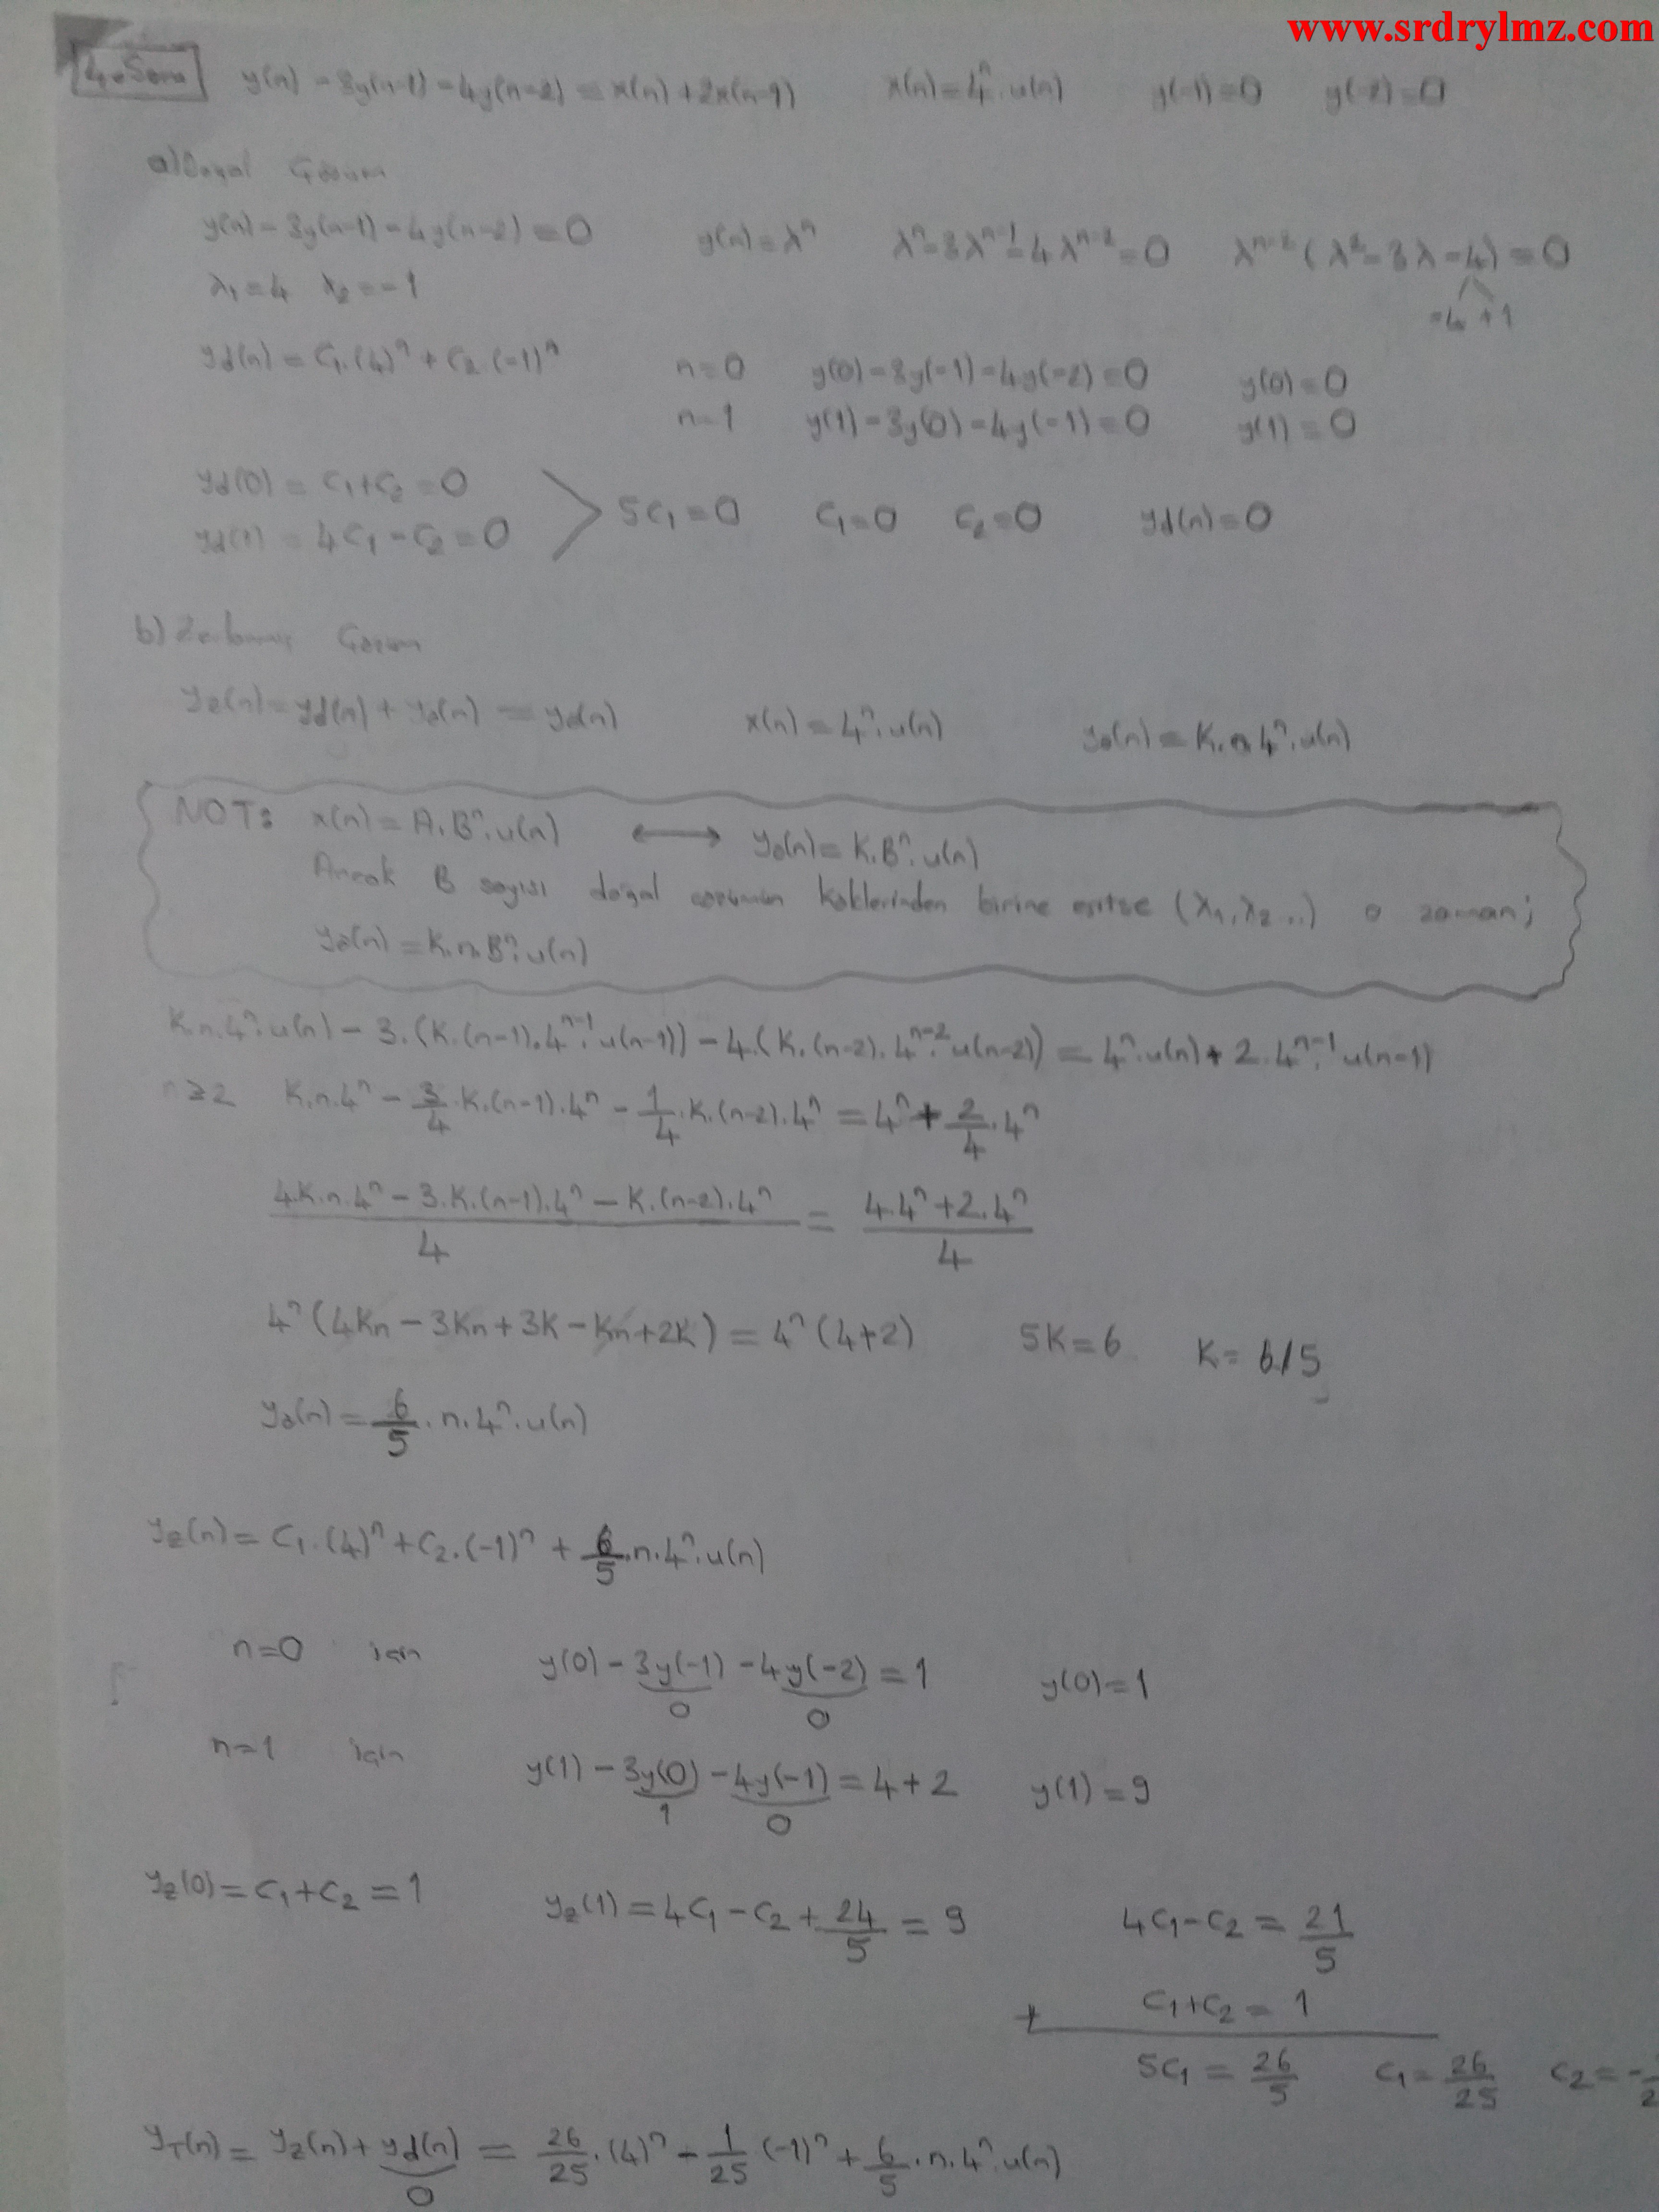 www.srdrylmz.com
4. Soru y(n) - 3y(n-1) - 4y(n-2) = x(n) + 2x(n-1) x(n) = 4ⁿ.u(n) y(-1)=0 y(-2)=0
a) Doğal Çözüm
y(n) - 3y(n-1) - 4y(n-2) = 0 y(n) = λⁿ λⁿ - 3λⁿ⁻¹ - 4λⁿ⁻² = 0 λⁿ⁻² (λ² - 3λ - 4) = 0
λ₁ = 4 λ₂ = -1 -4 +1
yd(n) = C₁.(4)ⁿ + C₂.(-1)ⁿ n=0 y(0) - 3y(-1) - 4y(-2) = 0 y(0) = 0
n=1 y(1) - 3y(0) - 4y(-1) = 0 y(1) = 0
yd(0) = C₁+C₂ = 0
yd(1) = 4C₁ - C₂ = 0 > 5C₁ = 0 C₁=0 C₂=0 yd(n) = 0
b) Zorlanmış Çözüm
yz(n) = yd(n) + yö(n) = yö(n) x(n) = 4ⁿ.u(n) yö(n) = K.n.4ⁿ.u(n)
NOT: x(n) = A.Bⁿ.u(n) ⟷ yö(n) = K.Bⁿ.u(n)
Ancak B sayısı doğal çözümün köklerinden birine eşitse (λ₁, λ₂ ..) o zaman;
yö(n) = K.n.Bⁿ.u(n)
K.n.4ⁿ.u(n) - 3.(K.(n-1).4ⁿ⁻¹.u(n-1)) - 4.(K.(n-2).4ⁿ⁻².u(n-2)) = 4ⁿ.u(n) + 2.4ⁿ⁻¹.u(n-1)
n≥2 K.n.4ⁿ - 3/4.K.(n-1).4ⁿ - 1/4.K.(n-2).4ⁿ = 4ⁿ + 2/4.4ⁿ
4.K.n.4ⁿ - 3.K.(n-1).4ⁿ - K.(n-2).4ⁿ / 4 = 4.4ⁿ + 2.4ⁿ / 4
4ⁿ (4Kn - 3Kn + 3K - Kn + 2K) = 4ⁿ (4+2) 5K = 6 K = 6/5
yö(n) = 6/5 . n.4ⁿ.u(n)
yz(n) = C₁.(4)ⁿ + C₂.(-1)ⁿ + 6/5.n.4ⁿ.u(n)
n=0 için y(0) - 3y(-1) - 4y(-2) = 1 y(0) = 1
0 0
n=1 için y(1) - 3y(0) - 4y(-1) = 4+2 y(1) = 9
1 0
yz(0) = C₁+C₂ = 1 yz(1) = 4C₁ - C₂ + 24/5 = 9 4C₁ - C₂ = 21/5
+ C₁+C₂ = 1
5C₁ = 26/5 C₁ = 26/25 C₂ = -
yT(n) = yz(n) + yd(n) = 26/25 .(4)ⁿ - 1/25 (-1)ⁿ + 6/5 . n.4ⁿ.u(n)
0